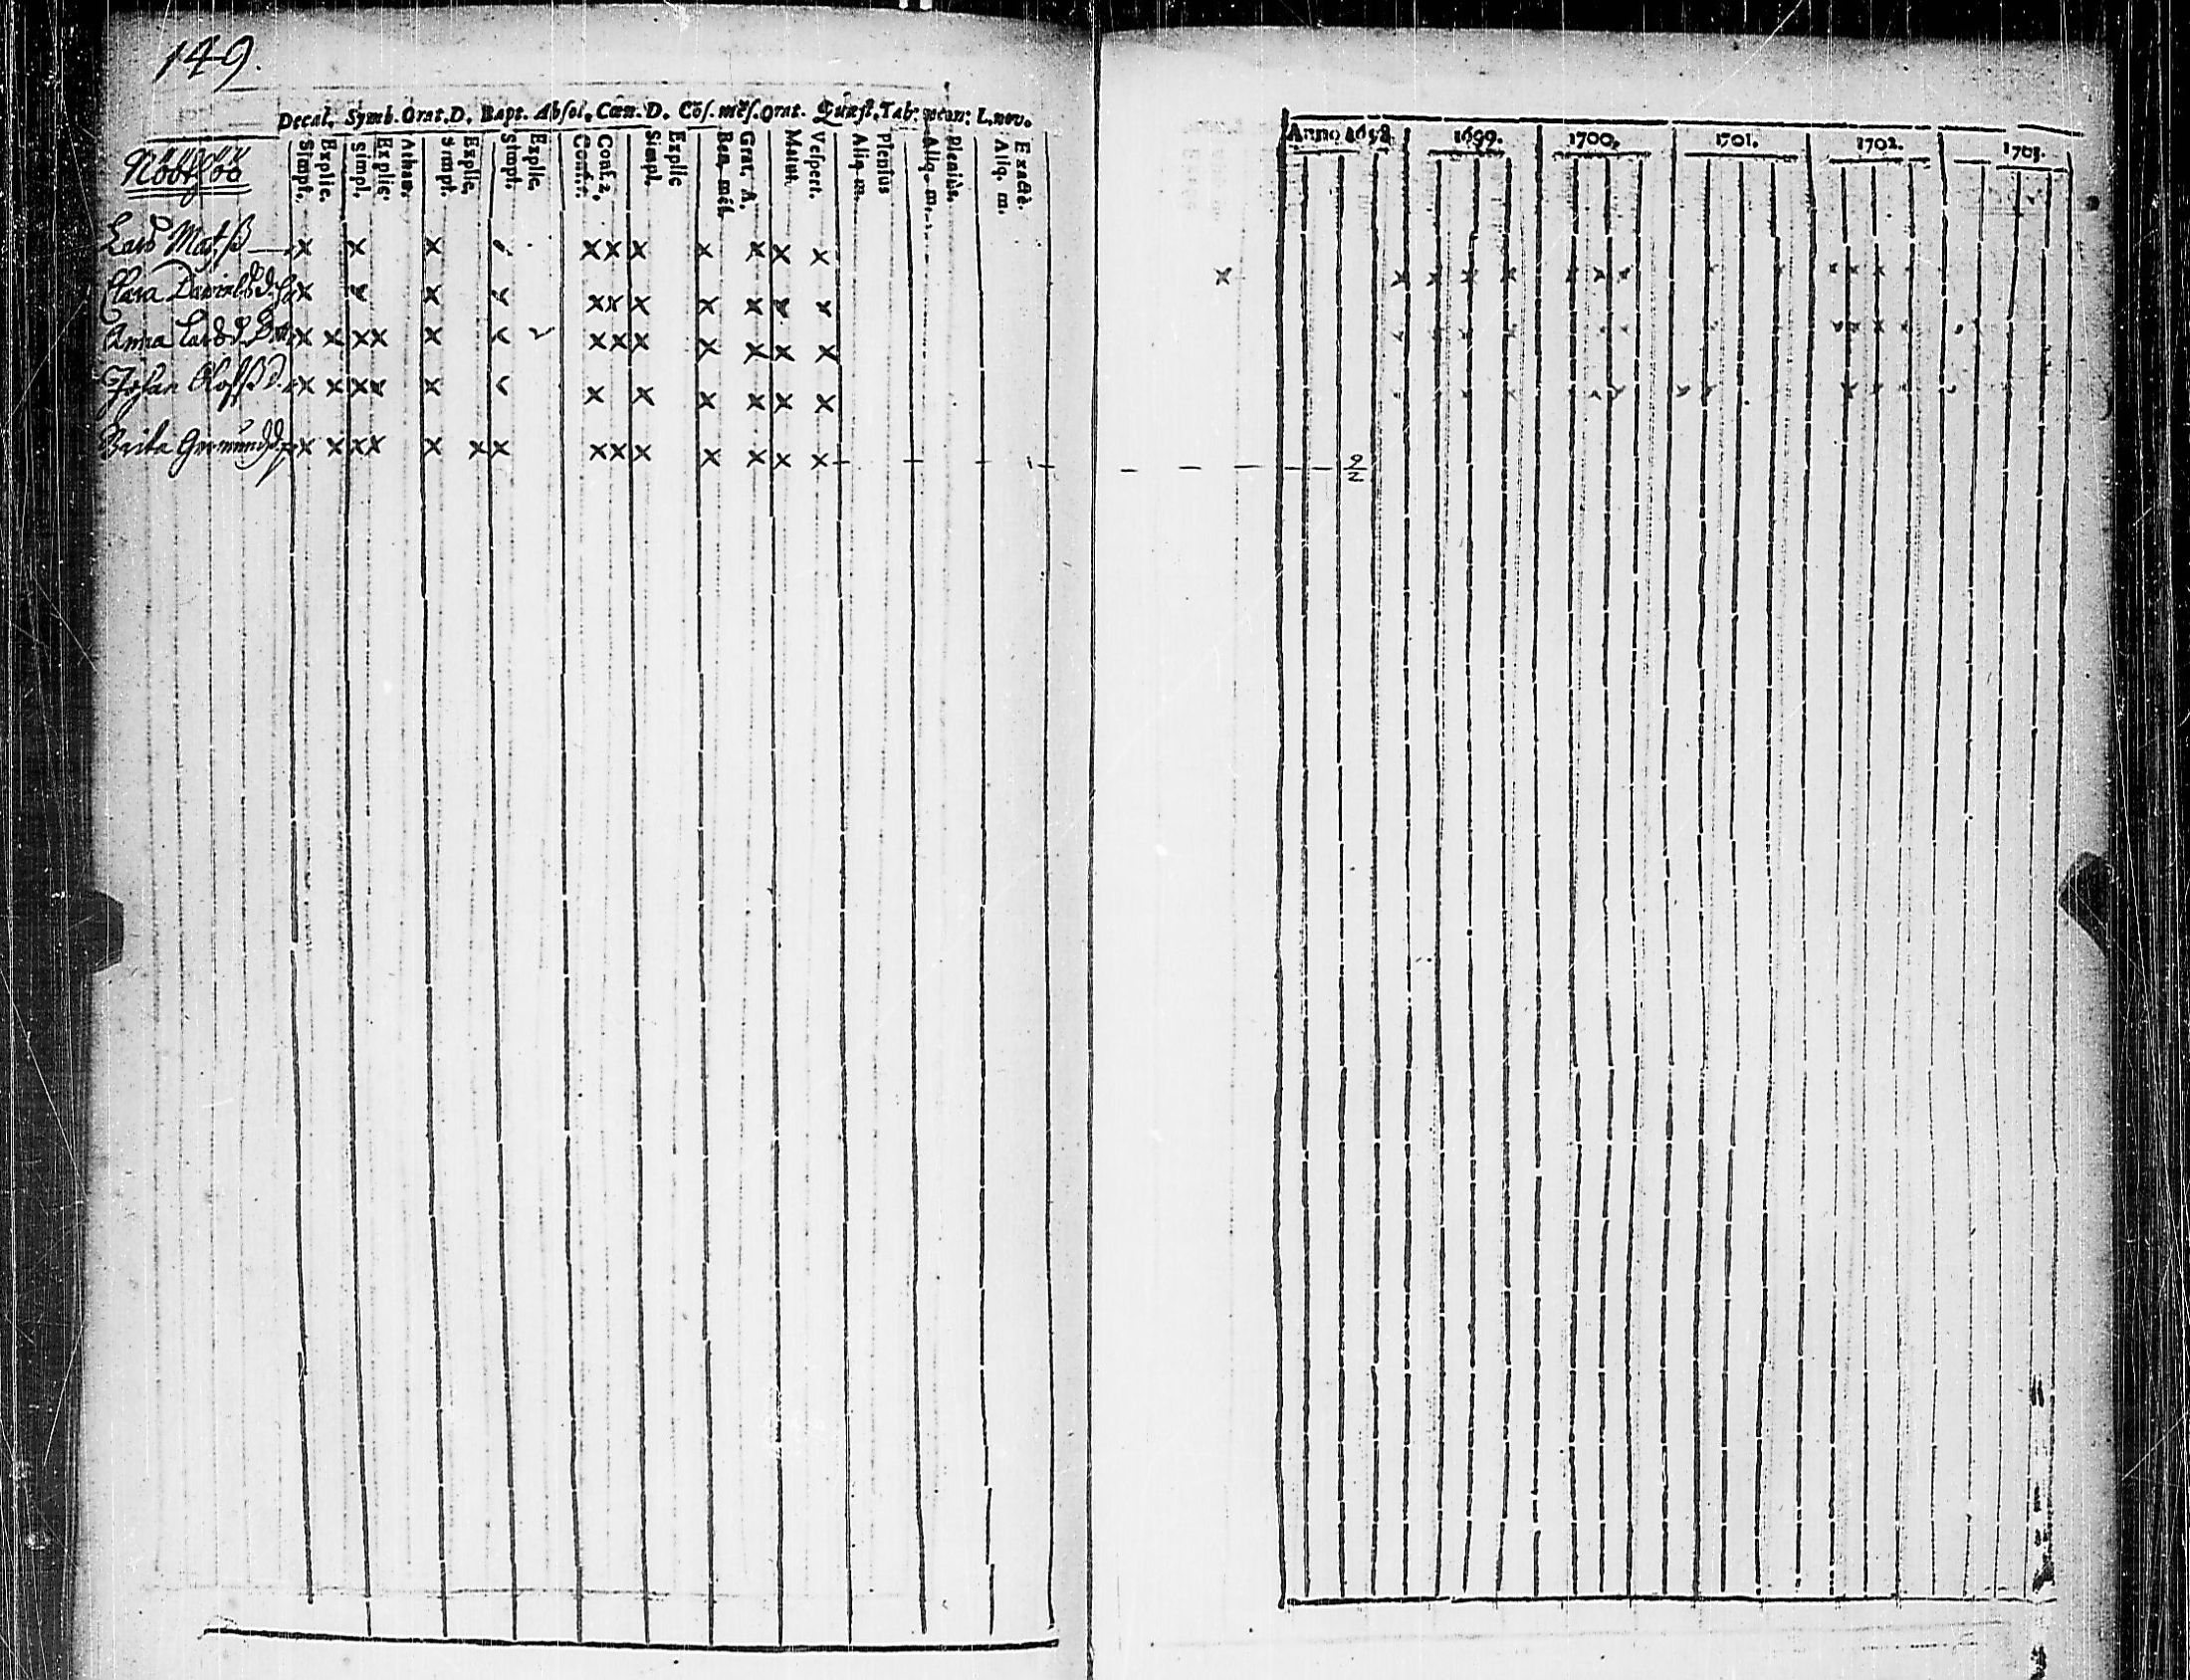 149.
Decal. Symb. Orat. D. Bapt. Absol. Cœn. D. Cōf. mēs. Orat. Quæst. Tab: œcon: L. nov.
Simpl. Explic. Simpl. Explic. Athan. Simpl. Explic. Simpl. Explic. Conf. 1. Conf. 2. Simpl. Explic Ben. mēs. Grat. A. Matut. Vespert. Aliq. m. Plenius Aliq. m. Pleniùs. Aliq. m. Exactè.
Lars Matsß x x x x x x x x x x
Clara x x x x x x x x x x x
Anna Larsd. x x x x x x x x x x x x x
Johan Olofß x x x x x x x x x x x
Brita x x x x x x x x x x x x x x
Anno 1698 1699. 1700. 1701. 1702. 1703.